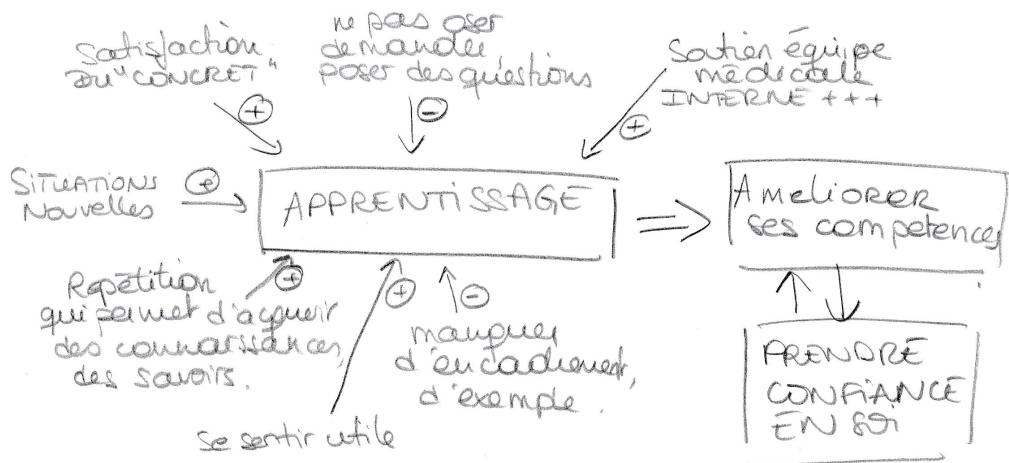 Satisfaction
DU "CONCRET"
+
ne pas oser
demander
poser des questions
-
Soutien équipe
médicale
INTERNE +++
+
SITUATIONS
Nouvelles
+
APPRENTISSAGE
AMELIORER
ses competences
Repétition
qui permet d'acquerir
des connaissances,
des savoirs.
+
se sentir utile
+
manquer
d'encadrement,
d'exemple.
-
PRENDRE
CONFIANCE
EN SOi